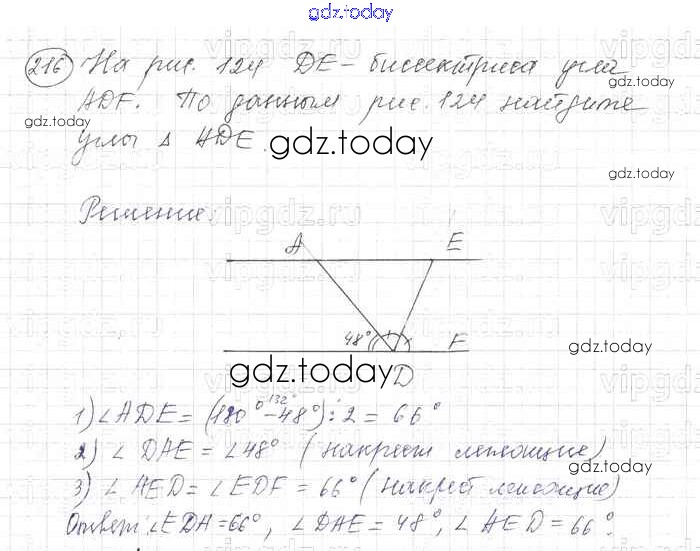 gdz.today
216 На рис. 124 DE - биссектриса угла
ADF. По данным рис. 124 найдите
gdz.today
углы Δ ADE.
gdz.today
gdz.today
Решение.
vipgdz.ru
A E
48° F
gdz.today
gdz.today
D
132°
1) ∠ADE = (180° - 48°) : 2 = 66°
gdz.today
2) ∠ DAE = ∠48° (накрест лежащие)
gdz.today
3) ∠ AED = ∠ EDF = 66° (накрест лежащие)
Ответ: ∠EDA = 66°, ∠ DAE = 48°, ∠ AED = 66°.
gdz.today